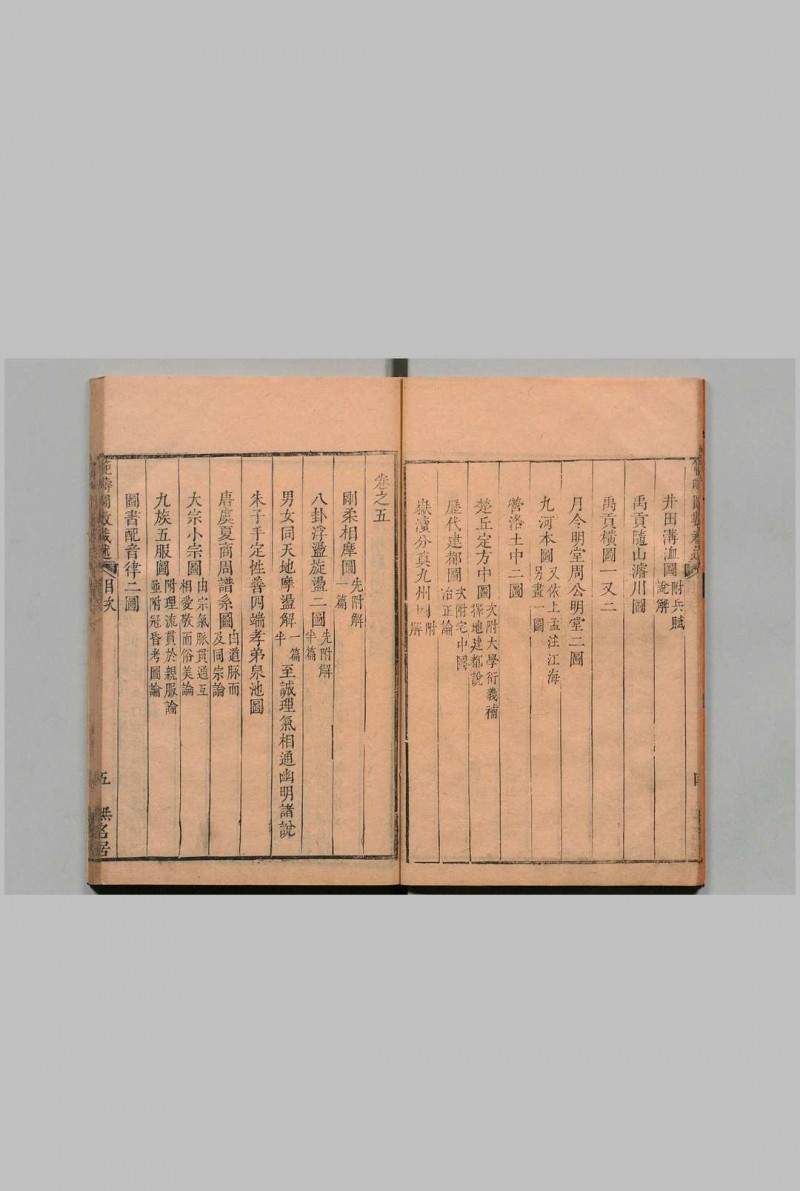 井田溝洫圖附兵賦說解
禹貢隨山濬川圖
禹貢橫圖一又二
月令明堂周公明堂二圖
九河本圖又依上孟注江海另畫一圖
營洛土中二圖
楚丘定方中圖次附大學衍義補擇地建都說
歷代建都圖次附宅中圖治正論
嶽瀆分真九州圖附解
卷之五
剛柔相摩圖先附解一篇
八卦浮盪旋盪二圖先附解半篇
男女同天地摩盪解一篇半至誠理氣相通幽明諸說
朱子手定性善四端孝弟泉池圖
唐虞夏商周譜系圖由道脉而及同宗論
大宗小宗圖由宗氣脉貫通互相愛敬而俗美論
九族五服圖附理流貫於親服論並附冠昏考圖論
圖書配音律二圖
目次
五
無名居